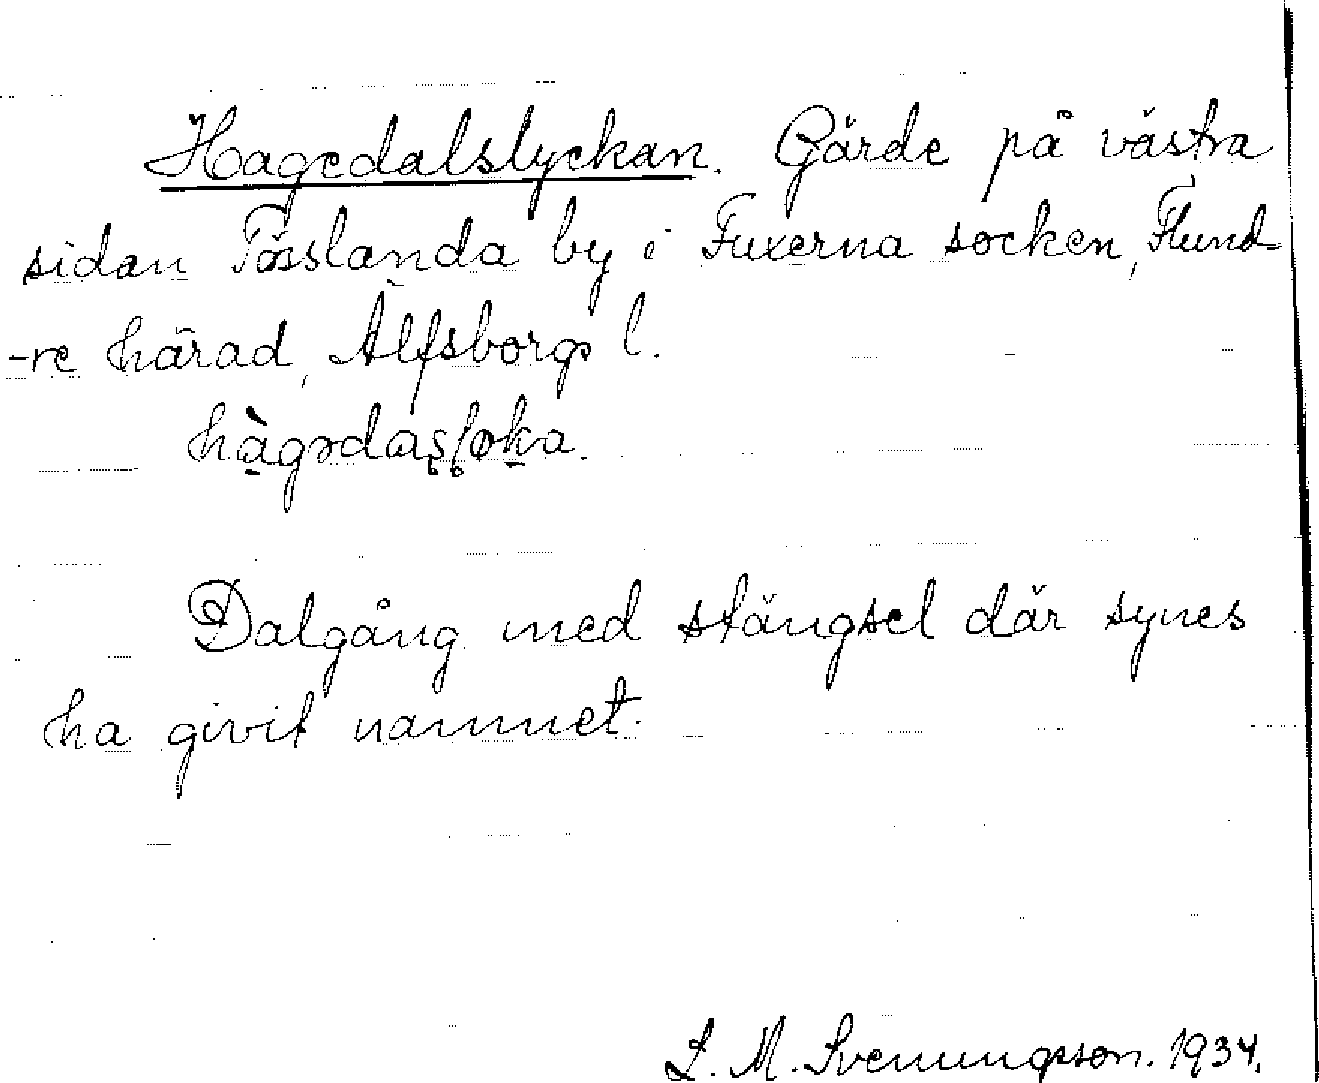 Hagedalslyckan. Gärde på västra
sidan Tösslanda by i Fuxerna socken, Flund-
-re härad, Älfsborgs l.
hàgədas̥l̥øka.
Dalgång med stängsel där synes
ha givit namnet.
L. M. Svenungsson. 1934.